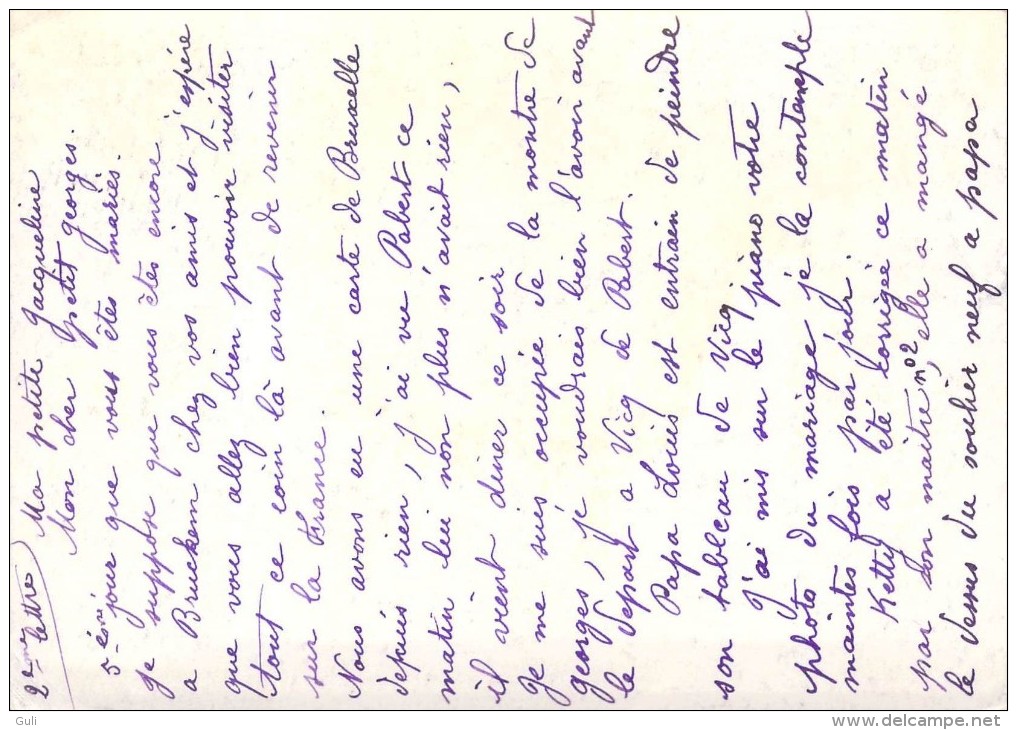 2ème lettre
Ma petite Jacqueline
Mon cher petit georges.
5e jour que vous êtes mariés.
je suppose que vous êtes encore
a chez vos amis et j'espère
que vous allez bien pouvoir visiter
tout ce coin là avant de revenir
sur la France.
Nous avons eu une carte de Bruxelle
depuis rien, j'ai vu Pabert ce
matin lui non plus n'avait rien,
il vient diner ce soir
Je me suis occupié de la montre de
georges, je voudrais bien l'avoir avant
le depart a Vicq de Pabert.
Papa Louis est entrain de peindre
son tableau de Vicq
J'ai mis sur le piano votre
photo du mariage je la contemple
maintes fois par jour.
Ketty a été corrigée ce matin
par son maitre n°2, elle a mangé
le dessus du soulier neuf a papa
Guli
www.delcampe.net